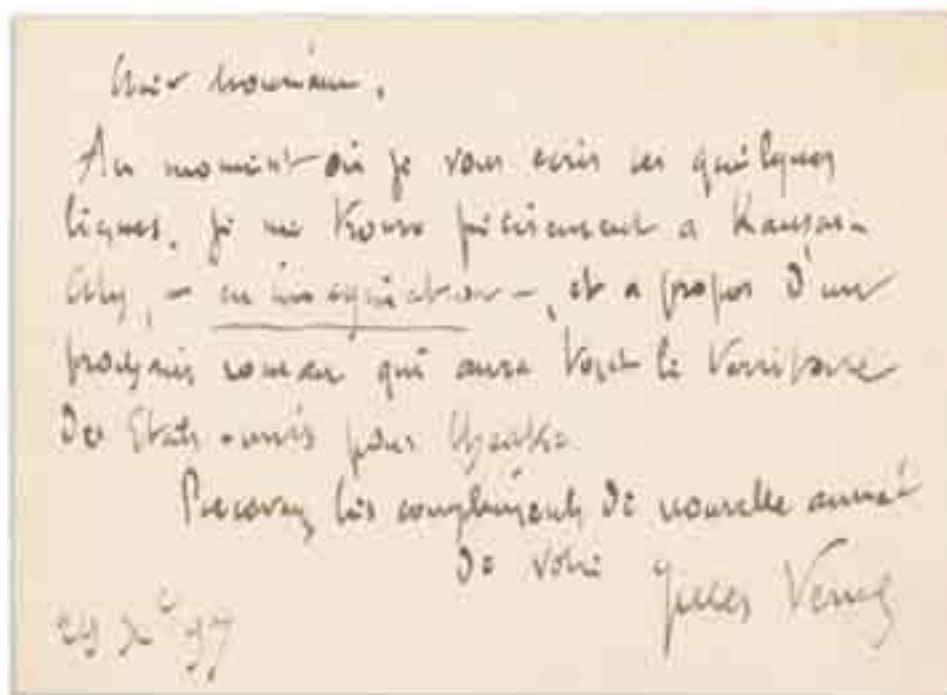 Cher Monsieur,
Au moment où je vous écris ces quelques
lignes, je me trouve précisément a Kansas-
City, – en imagination –, et a propos d'un
prochain roman qui aura tout le territoire
des Etats-unis pour théatre.
Recevez les compliments de nouvelle année
de votre Jules Verne
29 Xe 97